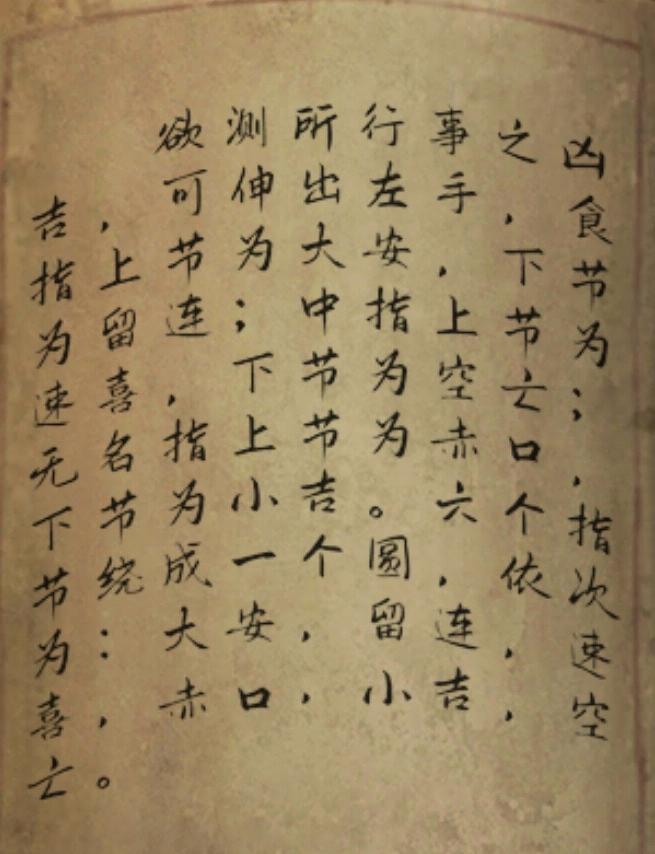 凶食节为；，指次速空
之，下节亡口个依，，
事手，上空赤六，连吉
行左安指为为。圆留小
所出大中节节吉个，，
测伸为；下上小一安口
欲可节连，指为成大赤
，上留喜名节绕：，。
吉指为速无下节为喜亡